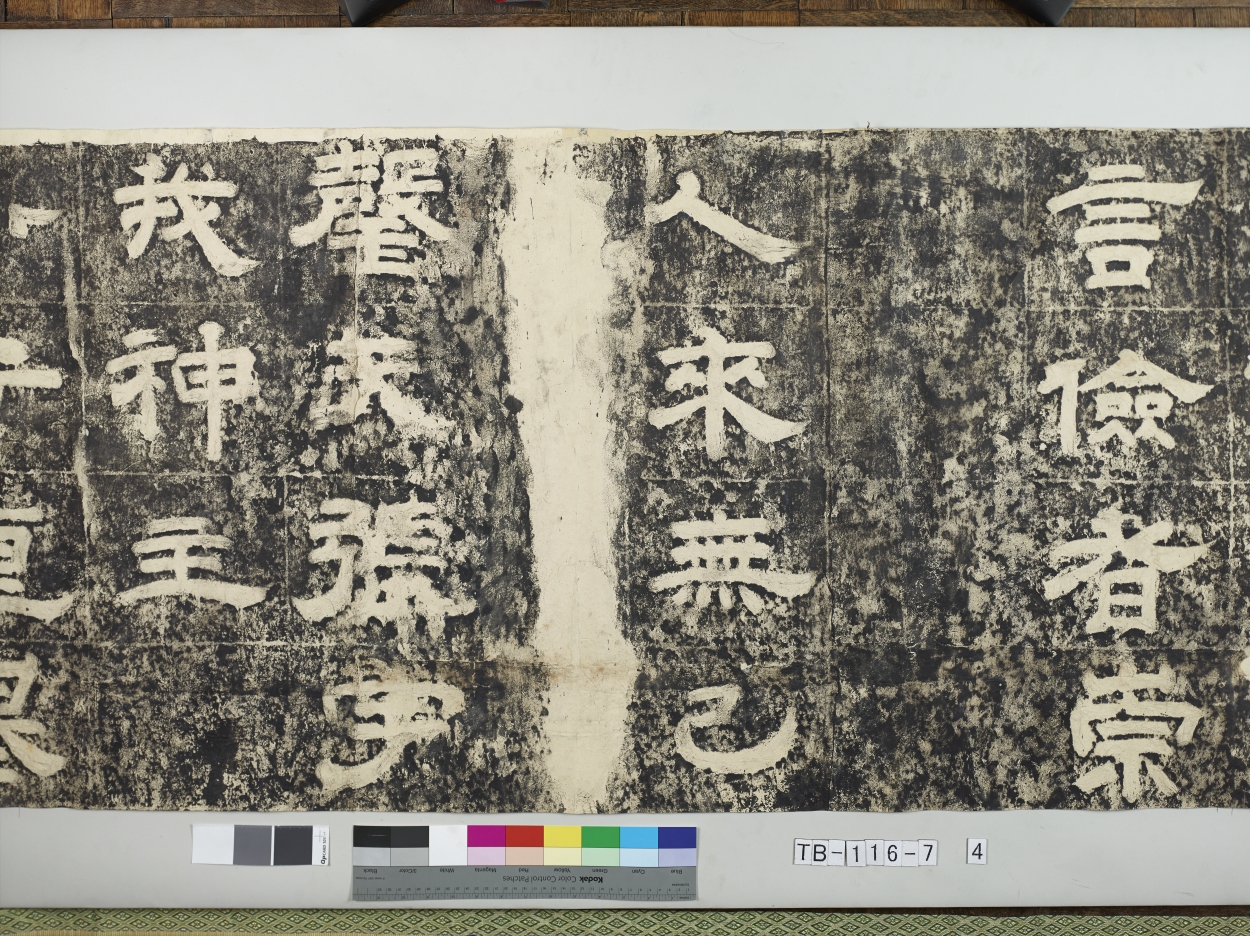 言儉者崇
人來無已
罄天張宇
我神主
TB-116-7 4
Kodak Color Control Patches
Blue Cyan Green Yellow Red Magenta White 3/Color Black